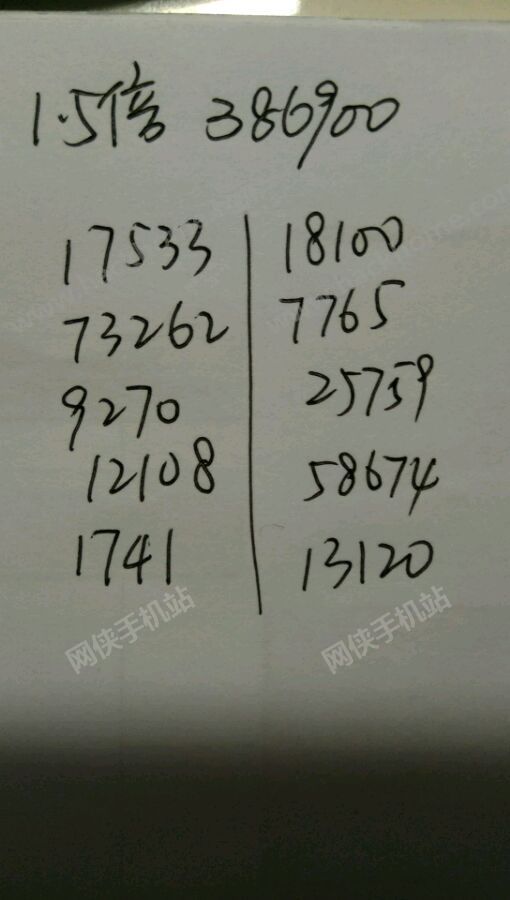 1.5倍 386900
17533 18100
73262 7765
9270 25759
12108 58674
1741 13120
网侠手机站 网侠手机站